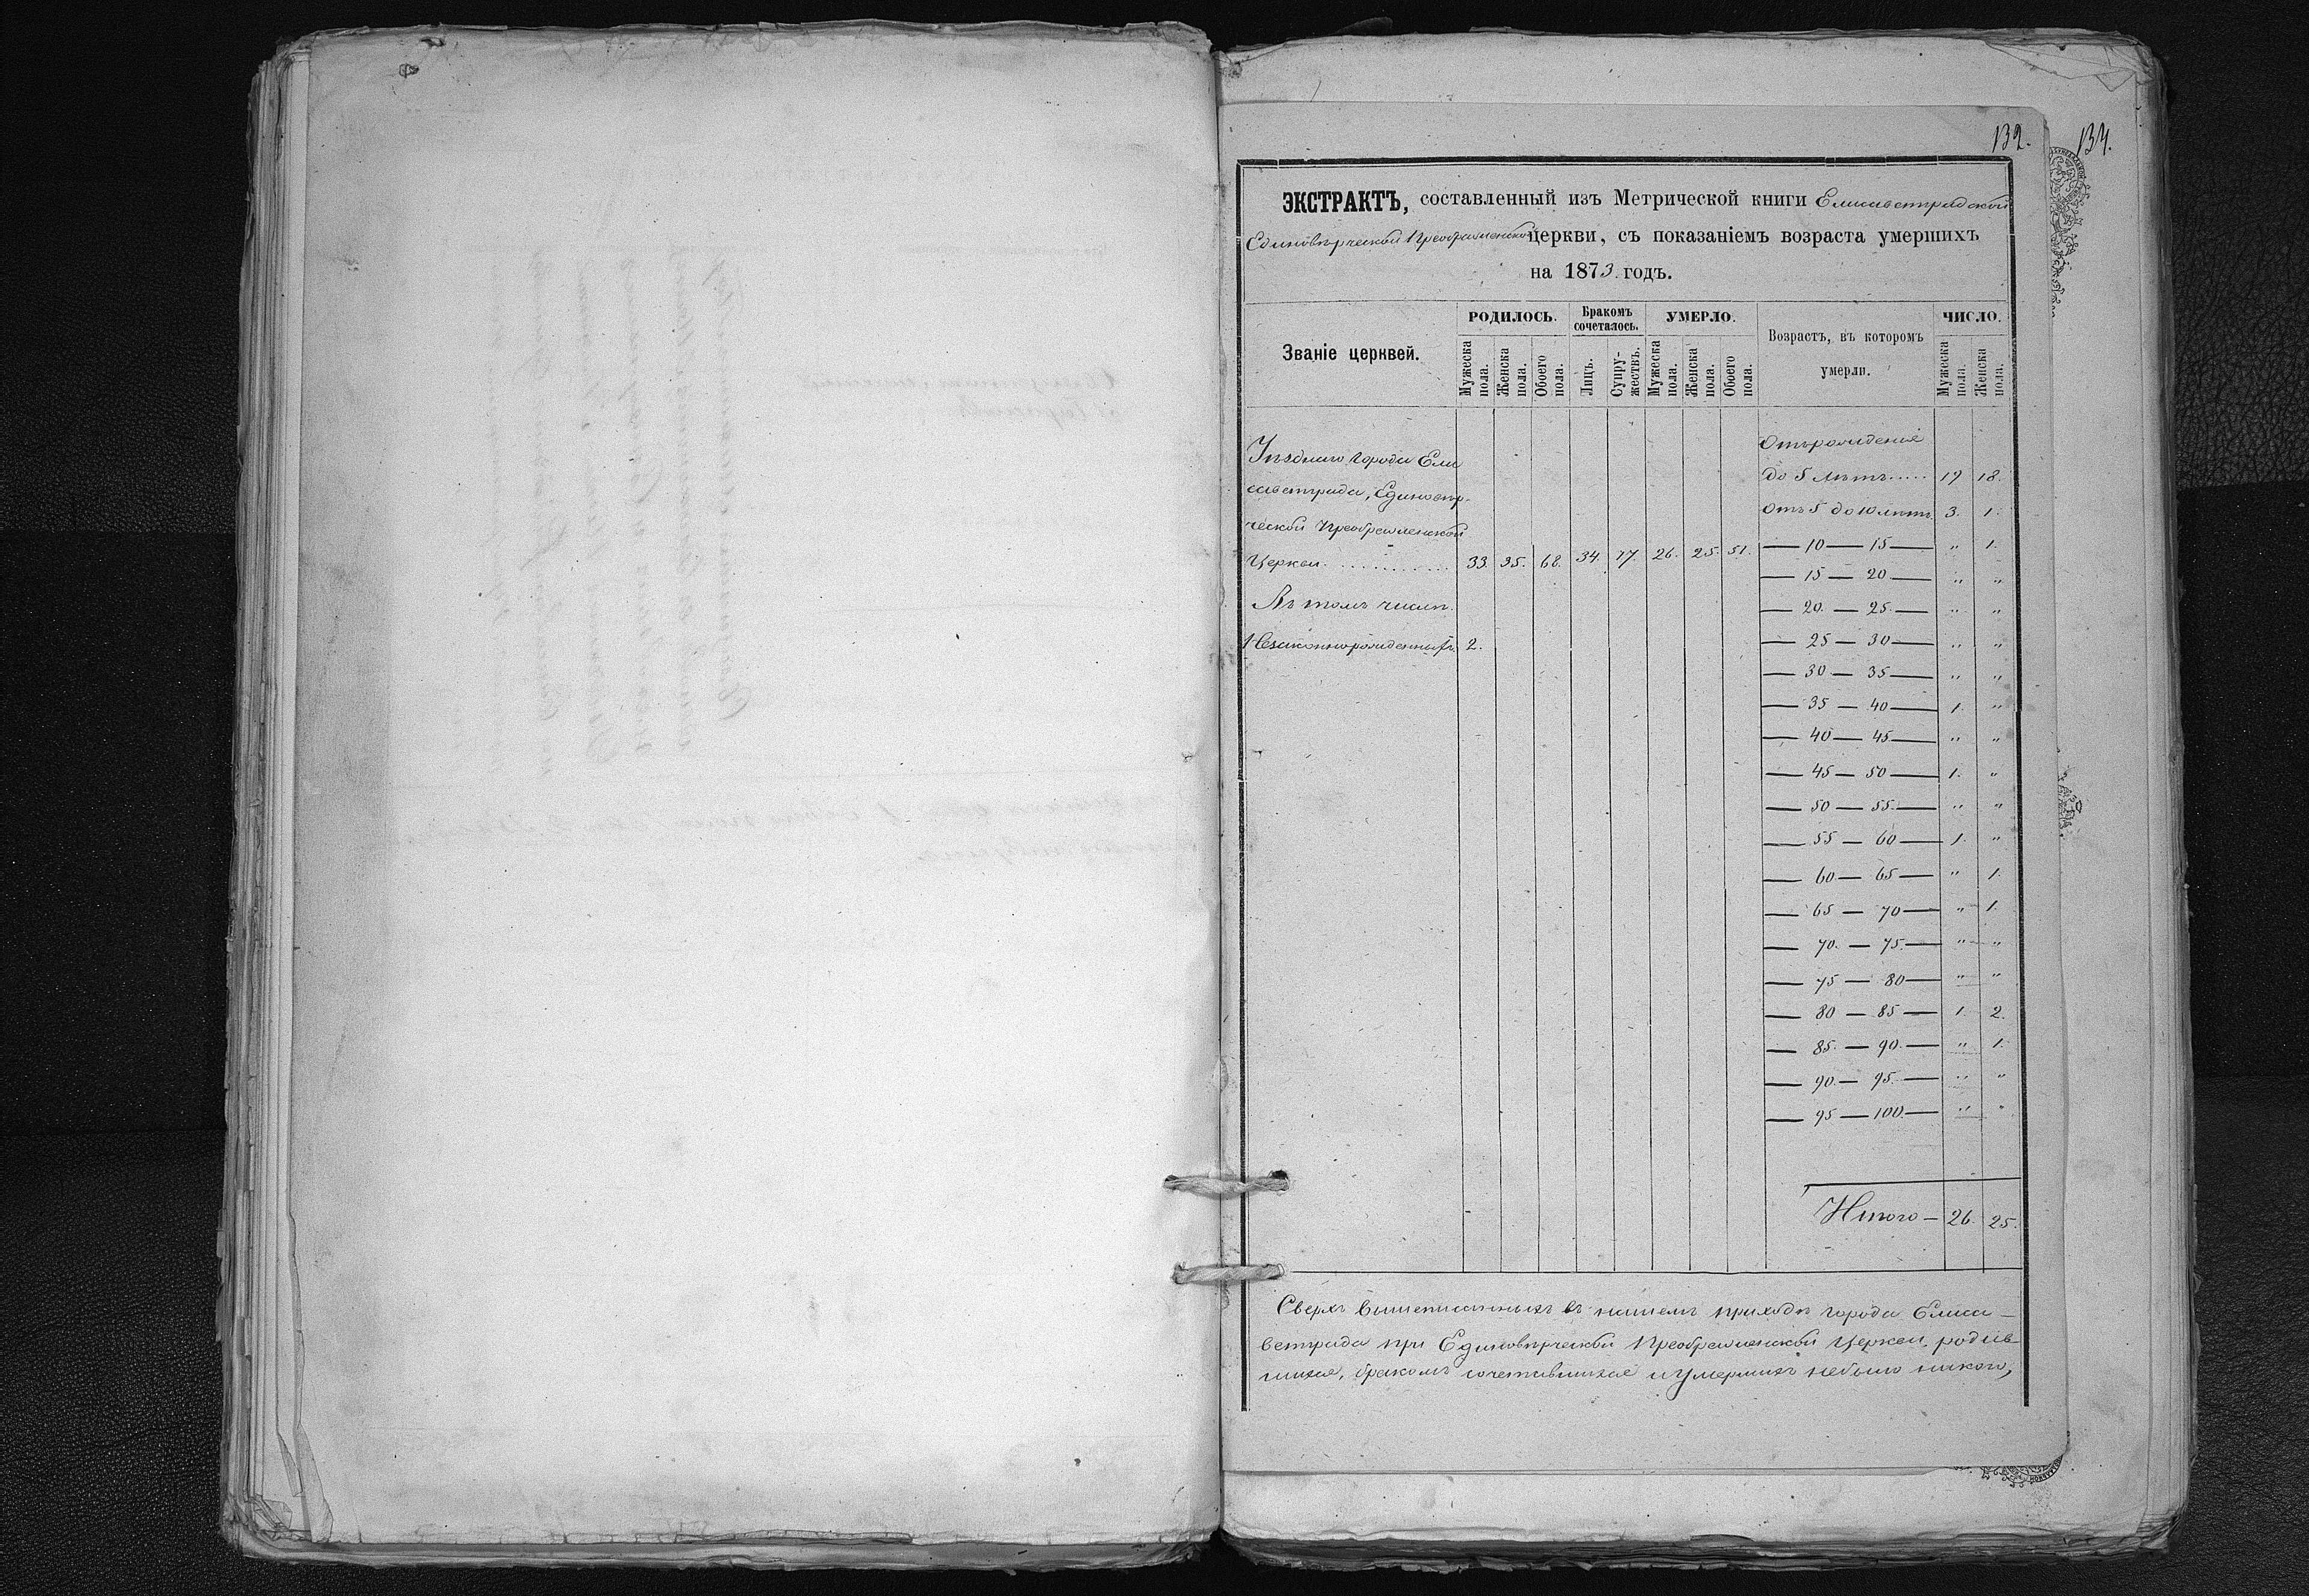 132.
134.
ЭКСТРАКТЪ, составленный изъ Метрической книги Елисаветградской
Единовѣрческой Преображенской церкви, съ показаніемъ возраста умершихъ
на 1873. годъ.
Званіе церквей.
РОДИЛОСЬ.
Мужеска пола.
Женска пола.
Обоего пола.
Бракомъ сочеталось.
Лицъ.
Супружествъ.
УМЕРЛО.
Мужеска пола.
Женска пола.
Обоего пола.
Возрастъ, въ которомъ
умерли.
ЧИСЛО.
Мужеска пола.
Женска пола.
Уѣзднаго города Ели
саветграда, Единовѣр-
ческой Преображенской
Церкви. 33. 35. 68. 34. 17. 26. 25. 51.
Въ томъ числѣ.
Незаконнорожденныхъ. 2.
Отъ рожденія
до 5 лѣтъ..... 19 18.
Отъ 5 до 10 лѣтъ. 3. 1.
— 10 — 15 — „ 1.
— 15 — 20 — „ „
— 20. — 25. — „ „
— 25 — 30 — „ „
— 30 — 35 — „ „
— 35 — 40 — 1. „
— 40 — 45 — „ „
— 45 — 50 — 1. „
— 50 — 55. — „ „
— 55 — 60 — 1. „
— 60 — 65 — „ 1.
— 65 — 70 — „ 1.
— 70. — 75. — „ „
— 75 — 80 — „ „
— 80 — 85 — 1. 2.
— 85. — 90. — „ 1.
— 90. — 95. — „ „
— 95 — 100. — „ „
Итого — 26. 25.
Сверхъ вышеписанныхъ въ нашемъ приходѣ города Елиса-
ветграда при Единовѣрческой Преображенской Церкви, родив-
шихся, бракомъ сочетавшихся и умершихъ небыло никого,